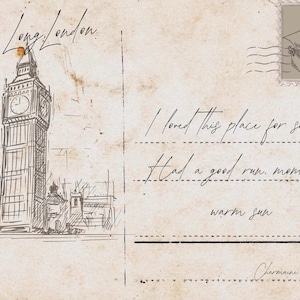 Long London
I loved this place for s
Had a good run, mom
warm sun
Charmaine